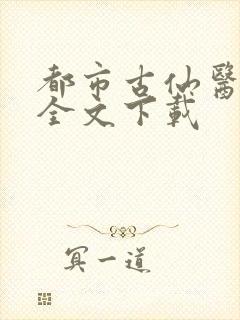 都市古仙醫
全文下載
冥一道